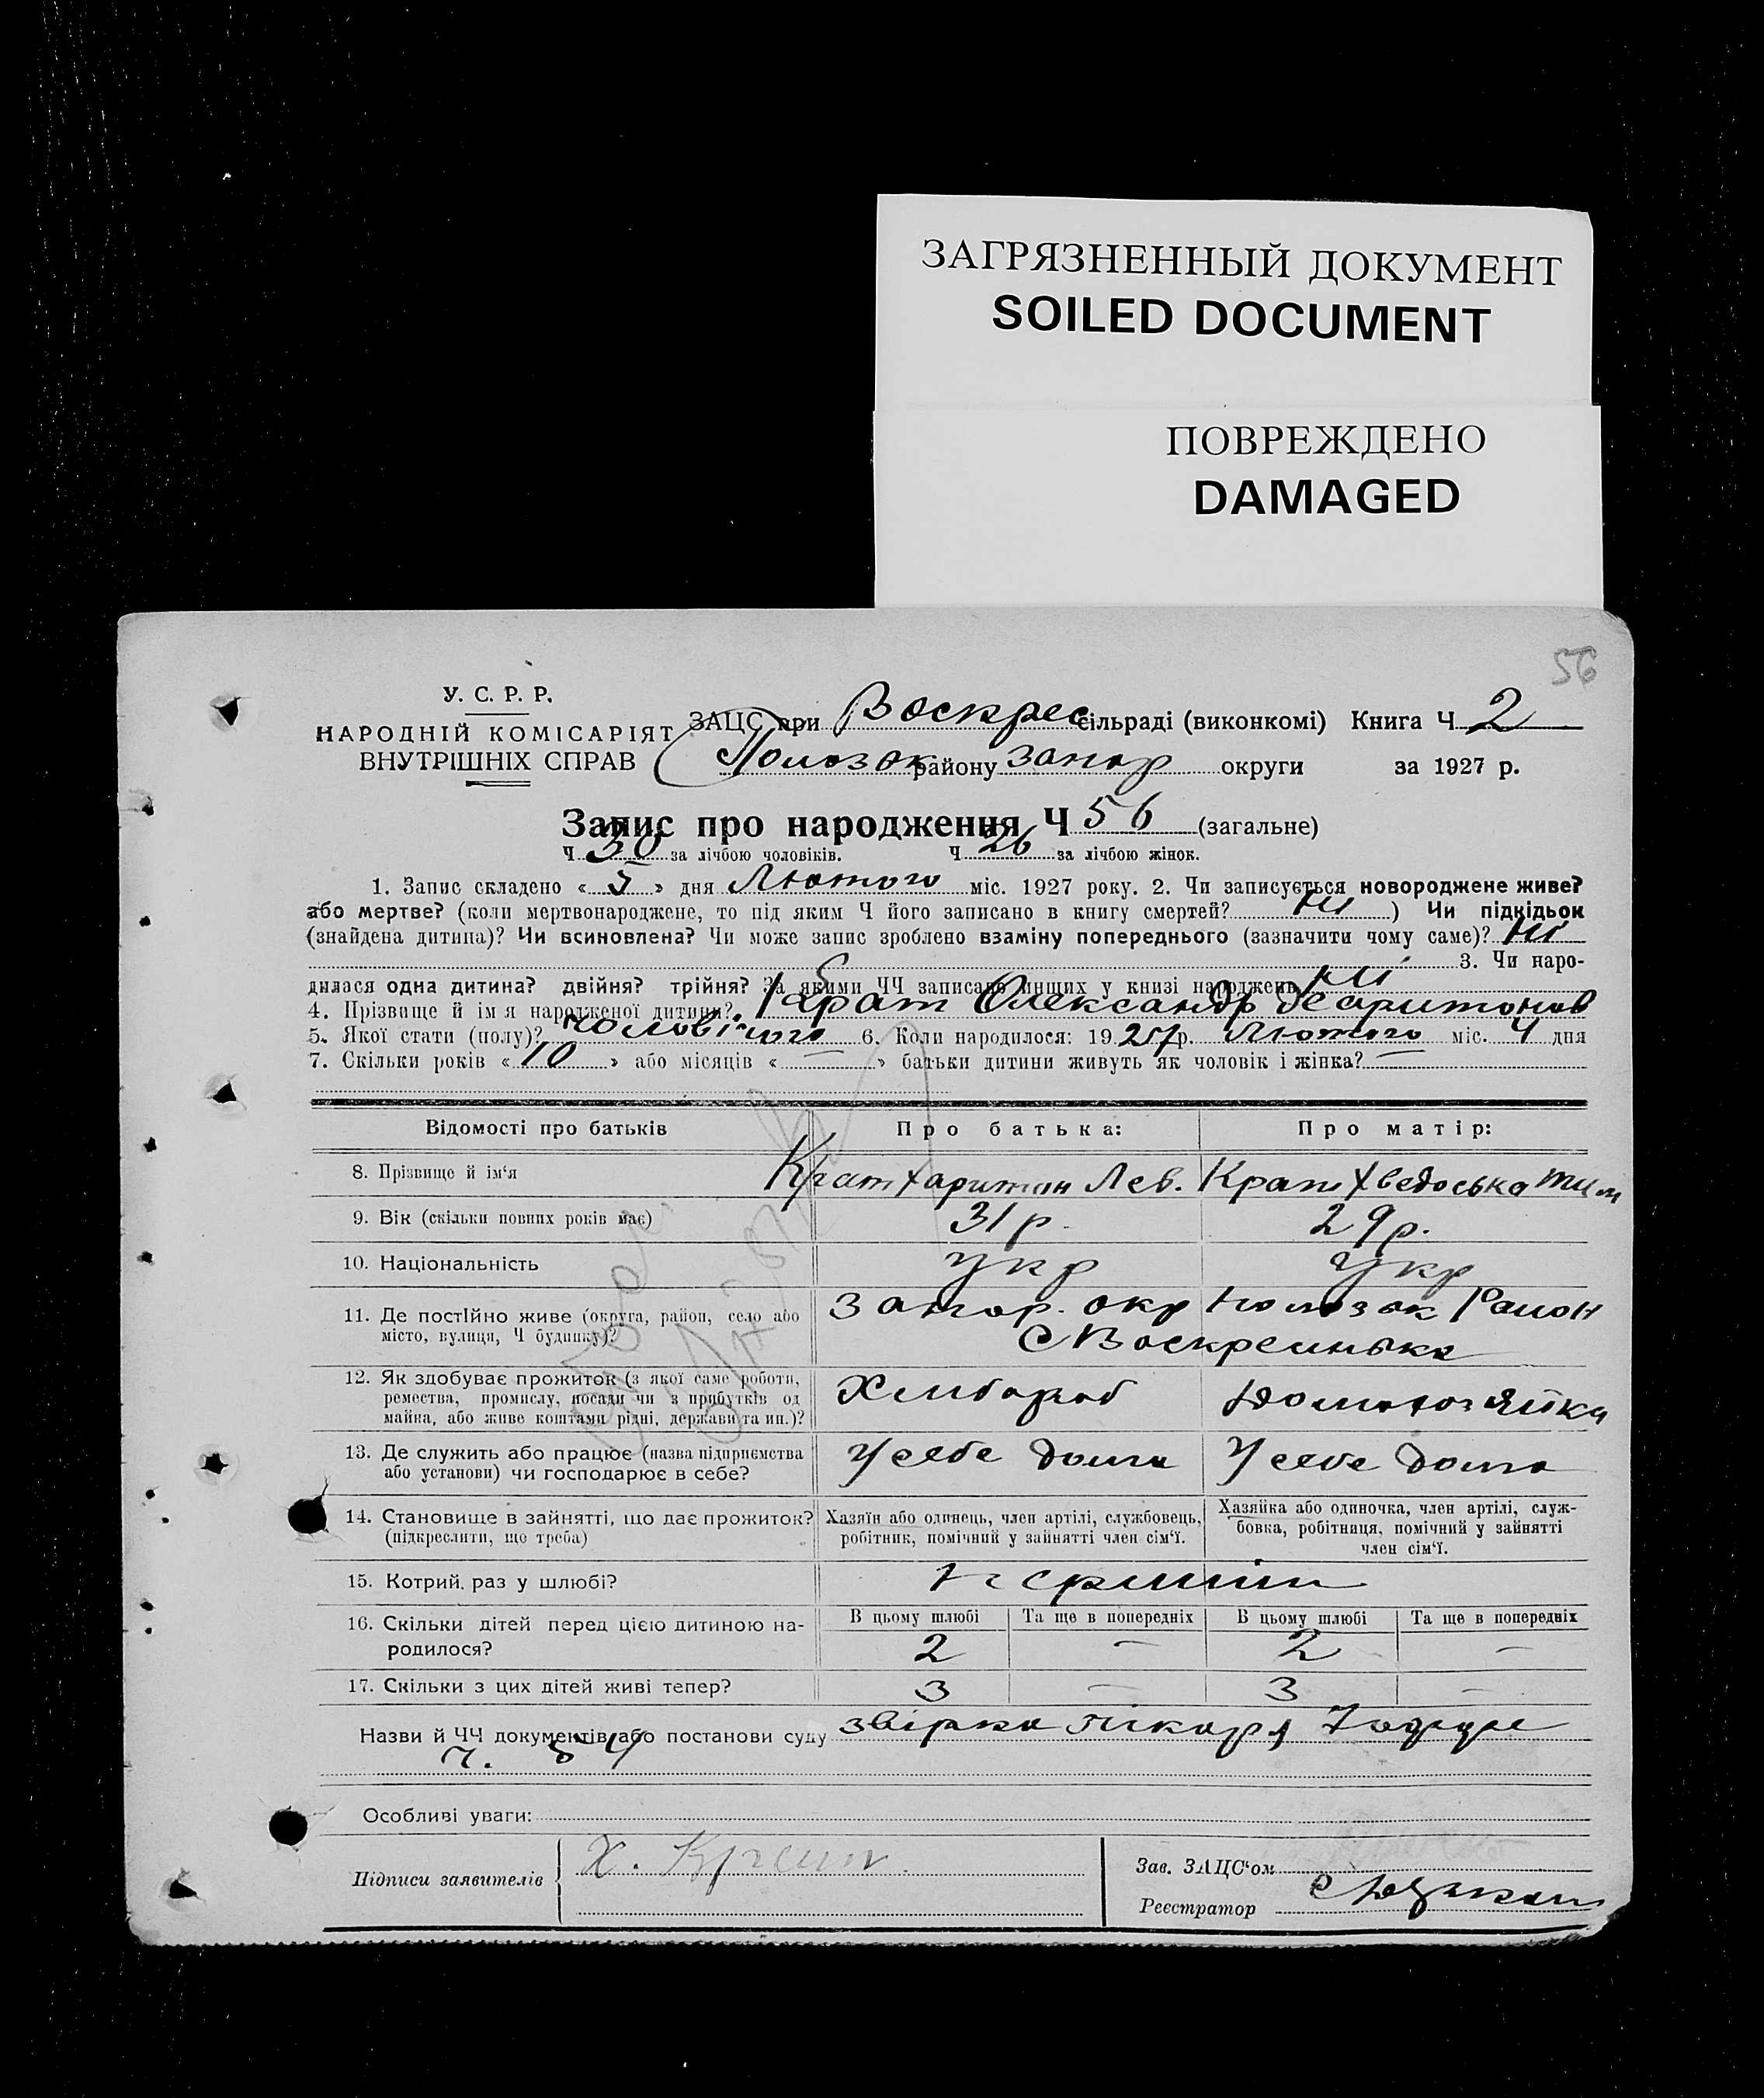 ЗАГРЯЗНЕННЫЙ ДОКУМЕНТ
SOILED DOCUMENT
ПОВРЕЖДЕНО
DAMAGED
56
У. С. Р. Р.
НАРОДНІЙ КОМІСАРІЯТ
ВНУТРІШНІХ СПРАВ
ЗАЦС при Воскрес сільраді (виконкомі) Книга Ч 2
Пологок району Запор округи за 1927 р.
Запис про народження Ч 56 (загальне)
Ч 30 за лічбою чоловіків. Ч 26 за лічбою жінок.
1. Запис складено « 5 » дня Лютого міс. 1927 року. 2. Чи записується новороджене живе?
або мертве? (коли мертвонароджене, то під яким Ч його записано в книгу смертей? Ні ) Чи підкідьок
(знайдена дитина)? Чи всиновлена? Чи може запис зроблено взаміну попереднього (зазначити чому саме)? Ні
3. Чи наро-
дилася одна дитина? двійня? трійня? За якими ЧЧ записано инших у книзі народжень Ні
4. Прізвище й ім'я народженої дитини? Крат Олександр Харитонов
5. Якої стати (полу)? чоловічого 6. Коли народилося: 1927 р. Лютого міс. 4 дня
7. Скільки років « 10 » або місяців « — » батьки дитини живуть як чоловік і жінка? —
Відомості про батьків Про батька: Про матір:
8. Прізвище й ім'я Крат Харитон Лев. Крат Хведоська Тим
9. Вік (скільки повних років має) 31 р. 29 р.
10. Національність Укр Укр
11. Де постійно живе (округа, район, село або Запор. окр Полозок Район
місто, вулиця, Ч будинку)? С Воскресинька
12. Як здобуває прожиток (з якої саме роботи, Хлібороб Домохозяйка
ремества, промислу, посади чи з прибутків од
майна, або живе коштами рідні, держави та ин.)?
13. Де служить або працює (назва підприємства У себе дома У себе дома
або установи) чи господарює в себе?
14. Становище в зайнятті, що дає прожиток? Хазяїн або одинець, член артілі, службовець, Хазяйка або одиночка, член артілі, служ-
(підкреслити, що треба) робітник, помічний у зайнятті член сім'ї. бовка, робітниця, помічний у зайнятті
член сім'ї.
15. Котрий раз у шлюбі? Перший
16. Скільки дітей перед цією дитиною на- В цьому шлюбі Та ще в попередніх В цьому шлюбі Та ще в попередніх
родилося? 2 — 2 —
17. Скільки з цих дітей живі тепер? 3 — 3 —
Назви й ЧЧ документів або постанови суду звірка
Ч. 54
Особливі уваги:
Підписи заявителів Х. Крат
Зав. ЗАЦС'ом
Реєстратор